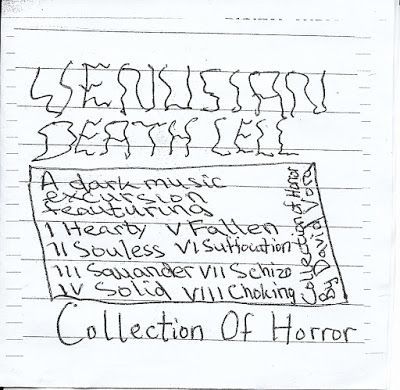 VENUSIAN
DEATH CELL
A dark music
excursion
feauturing
I Hearty V Fallen
II Souless VI Suffocation
III Sawander VII Schizo
IV Solid VIII Choking
Collection of Horror
By David Vora
Collection Of Horror